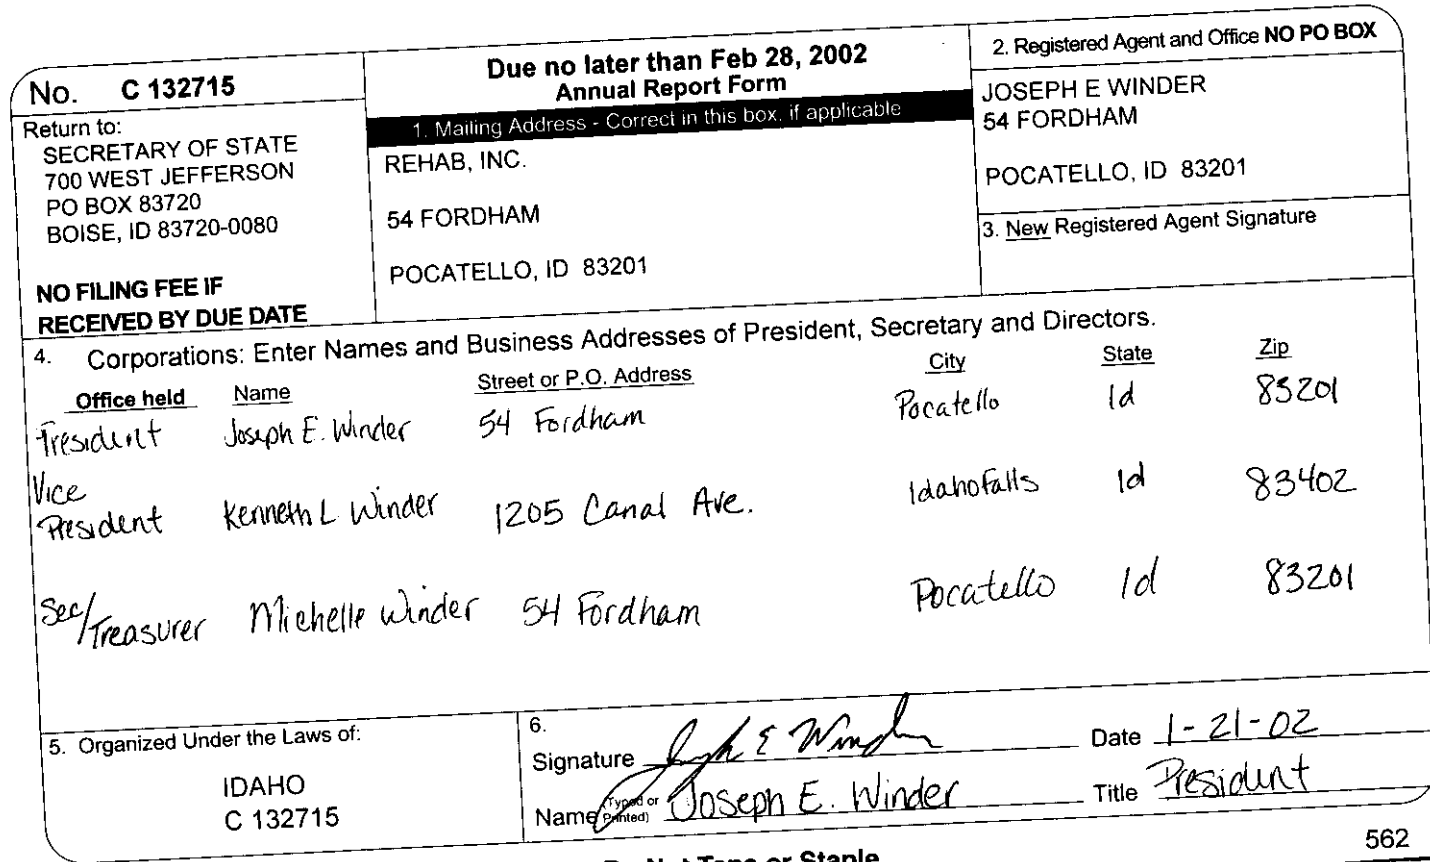 No. C 132715
Return to:
SECRETARY OF STATE
700 WEST JEFFERSON
PO BOX 83720
BOISE, ID 83720-0080
NO FILING FEE IF
RECEIVED BY DUE DATE
Due no later than Feb 28, 2002
Annual Report Form
1. Mailing Address - Correct in this box, if applicable
REHAB, INC.
54 FORDHAM
POCATELLO, ID 83201
2. Registered Agent and Office NO PO BOX
JOSEPH E WINDER
54 FORDHAM
POCATELLO, ID 83201
3. New Registered Agent Signature
4. Corporations: Enter Names and Business Addresses of President, Secretary and Directors.
Office held Name Street or P.O. Address City State Zip
President Joseph E. Winder 54 Fordham Pocatello Id 83201
Vice
President Kenneth L Winder 1205 Canal Ave. Idaho Falls Id 83402
Sec/
Treasurer Michelle Winder 54 Fordham Pocatello Id 83201
5. Organized Under the Laws of:
IDAHO
C 132715
6.
Signature Joseph E Winder Date 1-21-02
Name (Typed or Printed) Joseph E. Winder Title President
Do Not Tape or Staple
562